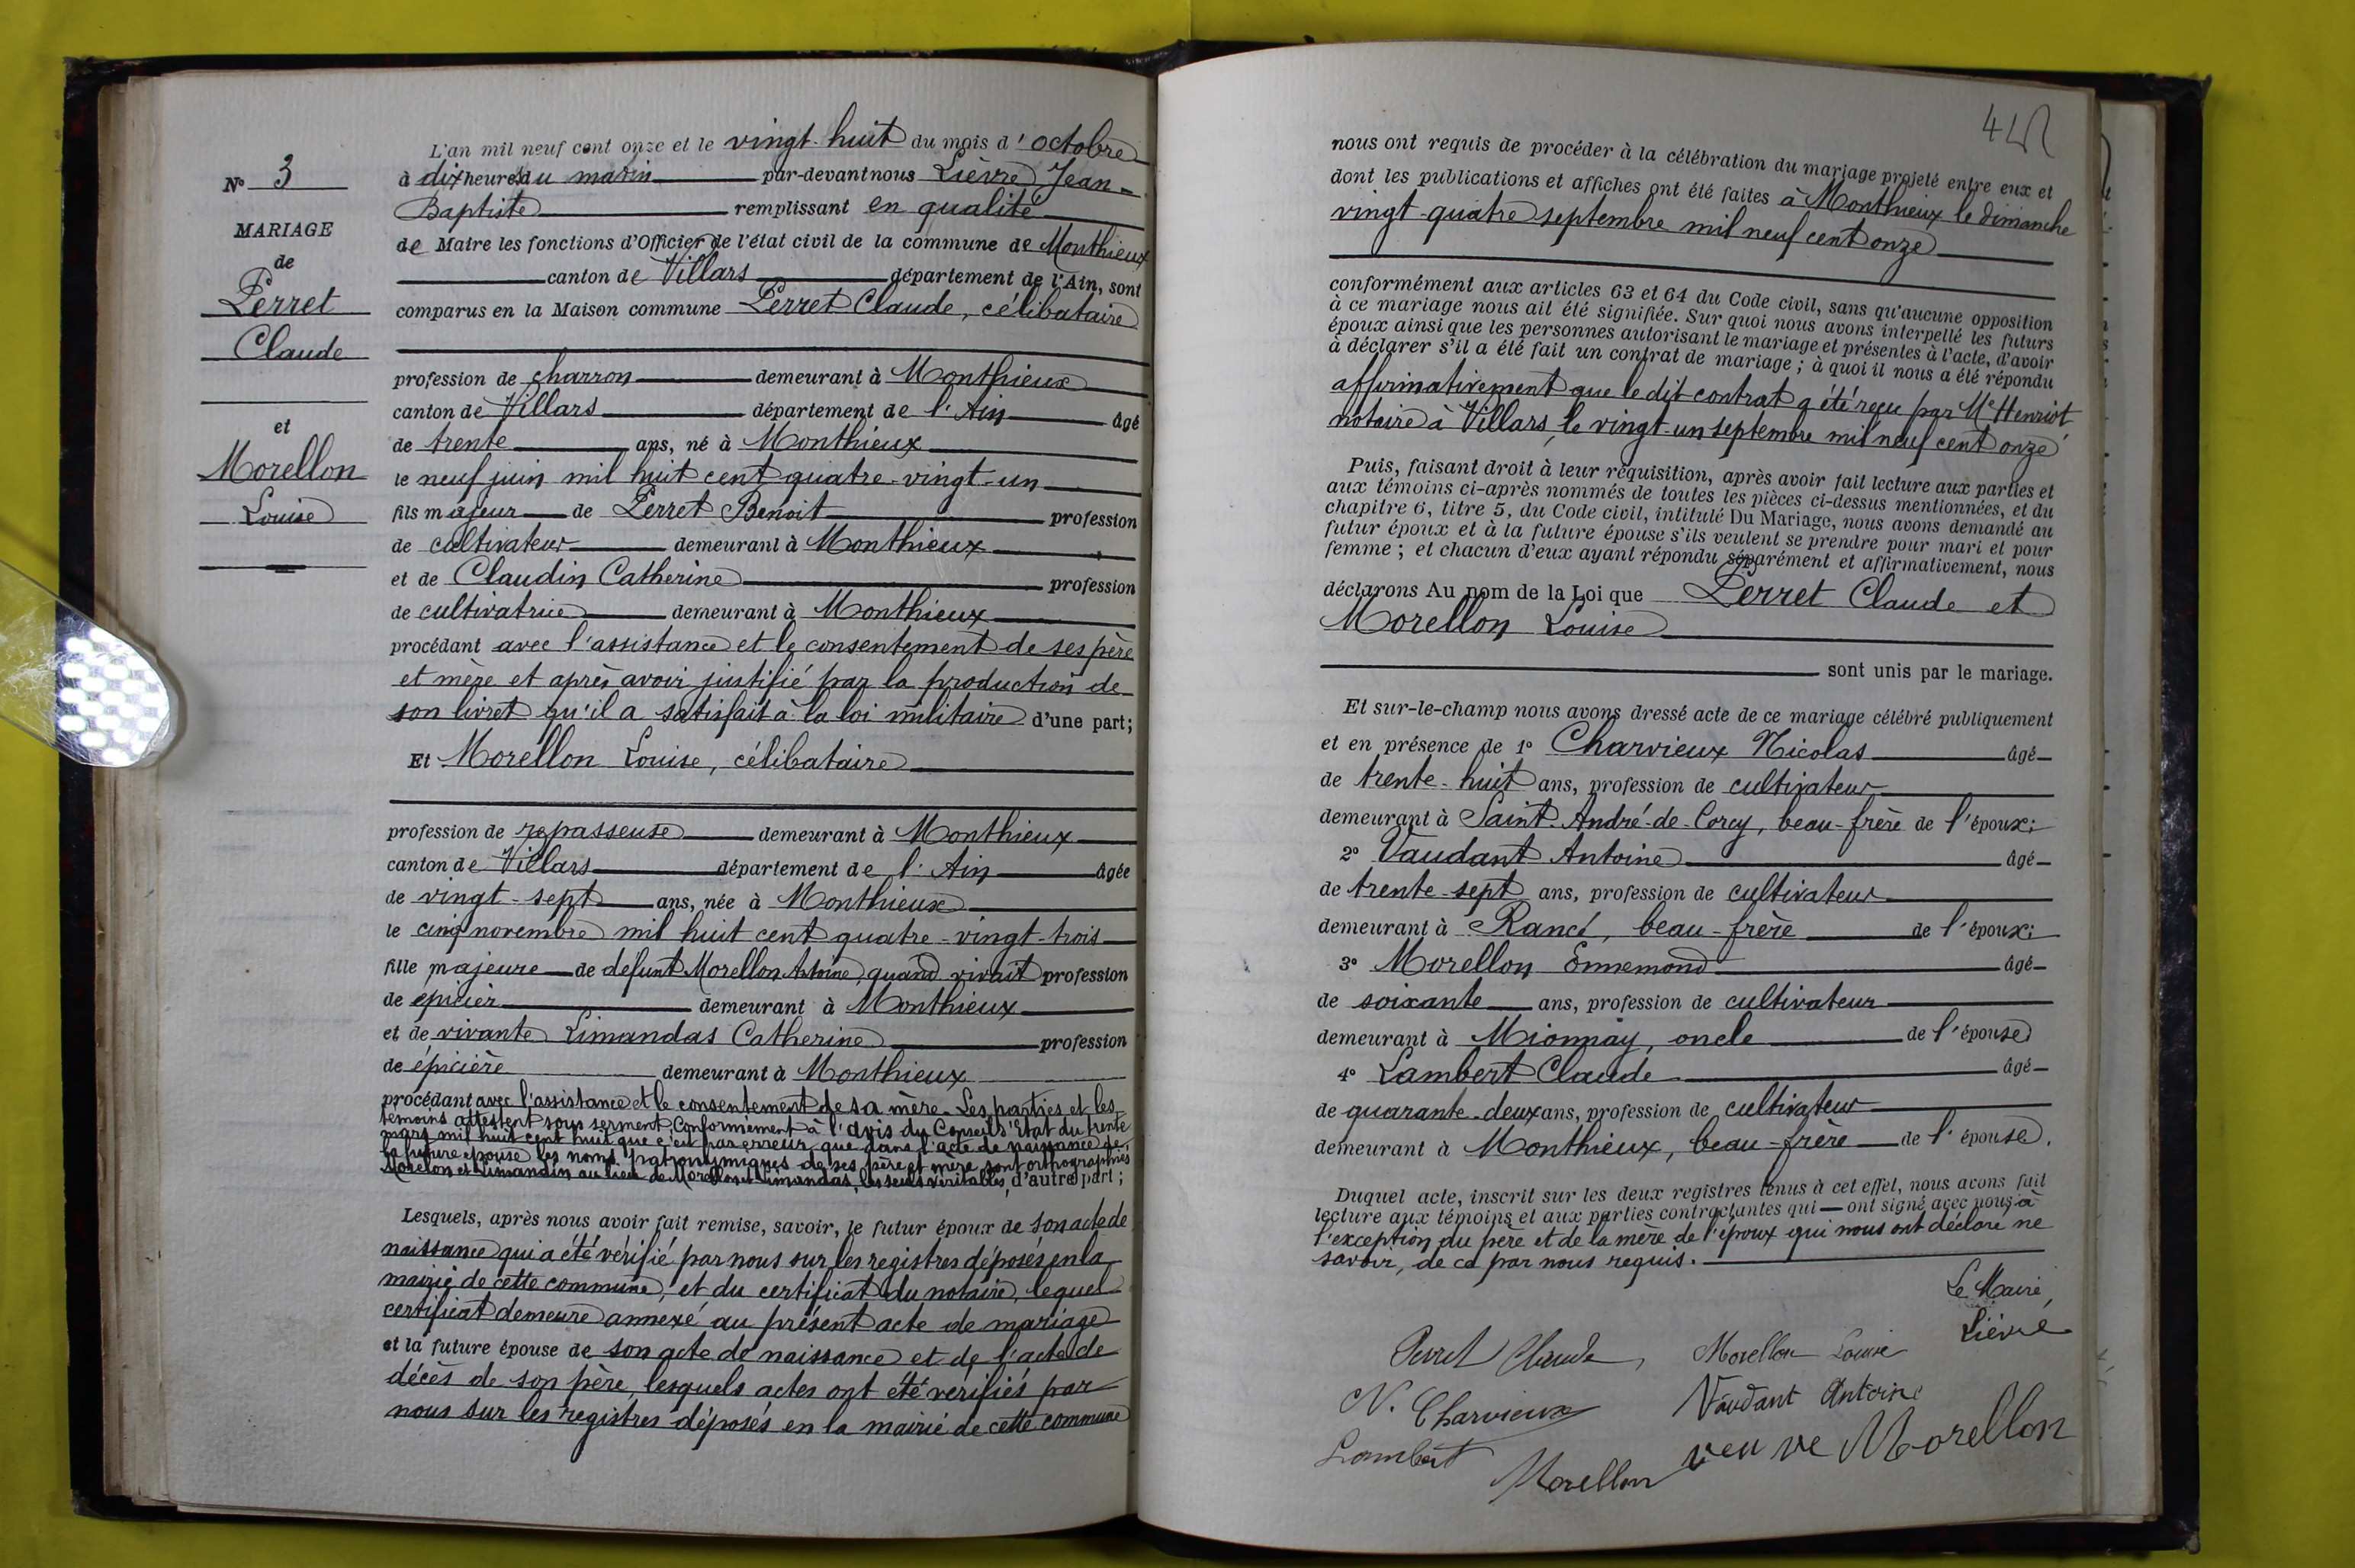 N° 3
MARIAGE
de
Perret
Claude
et
Morellon
Louise
L'an mil neuf cent onze et le vingt-huit du mois d'octobre
à dix heures du matin par-devant nous Lièvre Jean-
Baptiste remplissant en qualité
de Maire les fonctions d'Officier de l'état civil de la commune de Monthieux
canton de Villars département de l'Ain, sont
comparus en la Maison commune Perret Claude, célibataire
profession de charron demeurant à Monthieux
canton de Villars département de l'Ain âgé
de trente ans, né à Monthieux
le neuf juin mil huit cent quatre-vingt-un
fils majeur de Perret Benoit profession
de cultivateur demeurant à Monthieux
et de Claudin Catherine profession
de cultivatrice demeurant à Monthieux
procédant avec l'assistance et le consentement de ses père
et mère et après avoir justifié par la production de
son livret qu'il a satisfait à la loi militaire d'une part;
Et Morellon Louise, célibataire
profession de repasseuse demeurant à Monthieux
canton de Villars département de l'Ain âgée
de vingt-sept ans, née à Monthieux
le cinq novembre mil huit cent quatre-vingt-trois
fille majeure de défunt Morellon Antoine, quand vivait profession
de épicier demeurant à Monthieux
et de vivante Limandas Catherine profession
de épicière demeurant à Monthieux
procédant avec l'assistance et le consentement de sa mère. Les parties et les
témoins attestent sous serment, conformément à l'avis du Conseil d'Etat du trente
mars mil huit cent huit que c'est par erreur que dans l'acte de naissance de
la future épouse les noms patronymiques de ses père et mère sont orthographiés
Morelon et Limandin au lieu de Morellon et Limandas, les seuls véritables, d'autre part;
Lesquels, après nous avoir fait remise, savoir, le futur époux de son acte de
naissance qui a été vérifié par nous sur les registres déposés en la
mairie de cette commune, et du certificat du notaire, lequel
certificat demeure annexé au présent acte de mariage
et la future épouse de son acte de naissance et de l'acte de
décès de son père, lesquels actes ont été vérifiés par
nous sur les registres déposés en la mairie de cette commune
nous ont requis de procéder à la célébration du mariage projeté entre eux et
dont les publications et affiches ont été faites à Monthieux le dimanche
vingt-quatre septembre mil neuf cent onze
conformément aux articles 63 et 64 du Code civil, sans qu'aucune opposition
à ce mariage nous ait été signifiée. Sur quoi nous avons interpellé les futurs
époux ainsi que les personnes autorisant le mariage et présentes à l'acte, d'avoir
à déclarer s'il a été fait un contrat de mariage; à quoi il nous a été répondu
affirmativement que le dit contrat a été reçu par Me Henriot
notaire à Villars, le vingt-un septembre mil neuf cent onze
Puis, faisant droit à leur réquisition, après avoir fait lecture aux parties et
aux témoins ci-après nommés de toutes les pièces ci-dessus mentionnées, et du
chapitre 6, titre 5, du Code civil, intitulé Du Mariage, nous avons demandé au
futur époux et à la future épouse s'ils veulent se prendre pour mari et pour
femme; et chacun d'eux ayant répondu séparément et affirmativement, nous
déclarons Au nom de la Loi que Perret Claude et
Morellon Louise
sont unis par le mariage.
Et sur-le-champ nous avons dressé acte de ce mariage célébré publiquement
et en présence de 1° Charvieux Nicolas âgé
de trente-huit ans, profession de cultivateur
demeurant à Saint-André-de-Corcy, beau-frère de l'époux;
2° Vaudant Antoine âgé
de trente-sept ans, profession de cultivateur
demeurant à Rancé, beau-frère de l'époux;
3° Morellon Ennemond âgé
de soixante ans, profession de cultivateur
demeurant à Mionnay, oncle de l'épouse
4° Lambert Claude âgé
de quarante-deux ans, profession de cultivateur
demeurant à Monthieux, beau-frère de l'épouse.
Duquel acte, inscrit sur les deux registres tenus à cet effet, nous avons fait
lecture aux témoins et aux parties contractantes qui ont signé avec nous, à
l'exception du père et de la mère de l'époux qui nous ont déclaré ne
savoir, de ce par nous requis.
Le Maire,
Lièvre
Perret Claude, Morellon Louise
N. Charvieux Vaudant Antoine
Lambert Morellon veuve Morellon